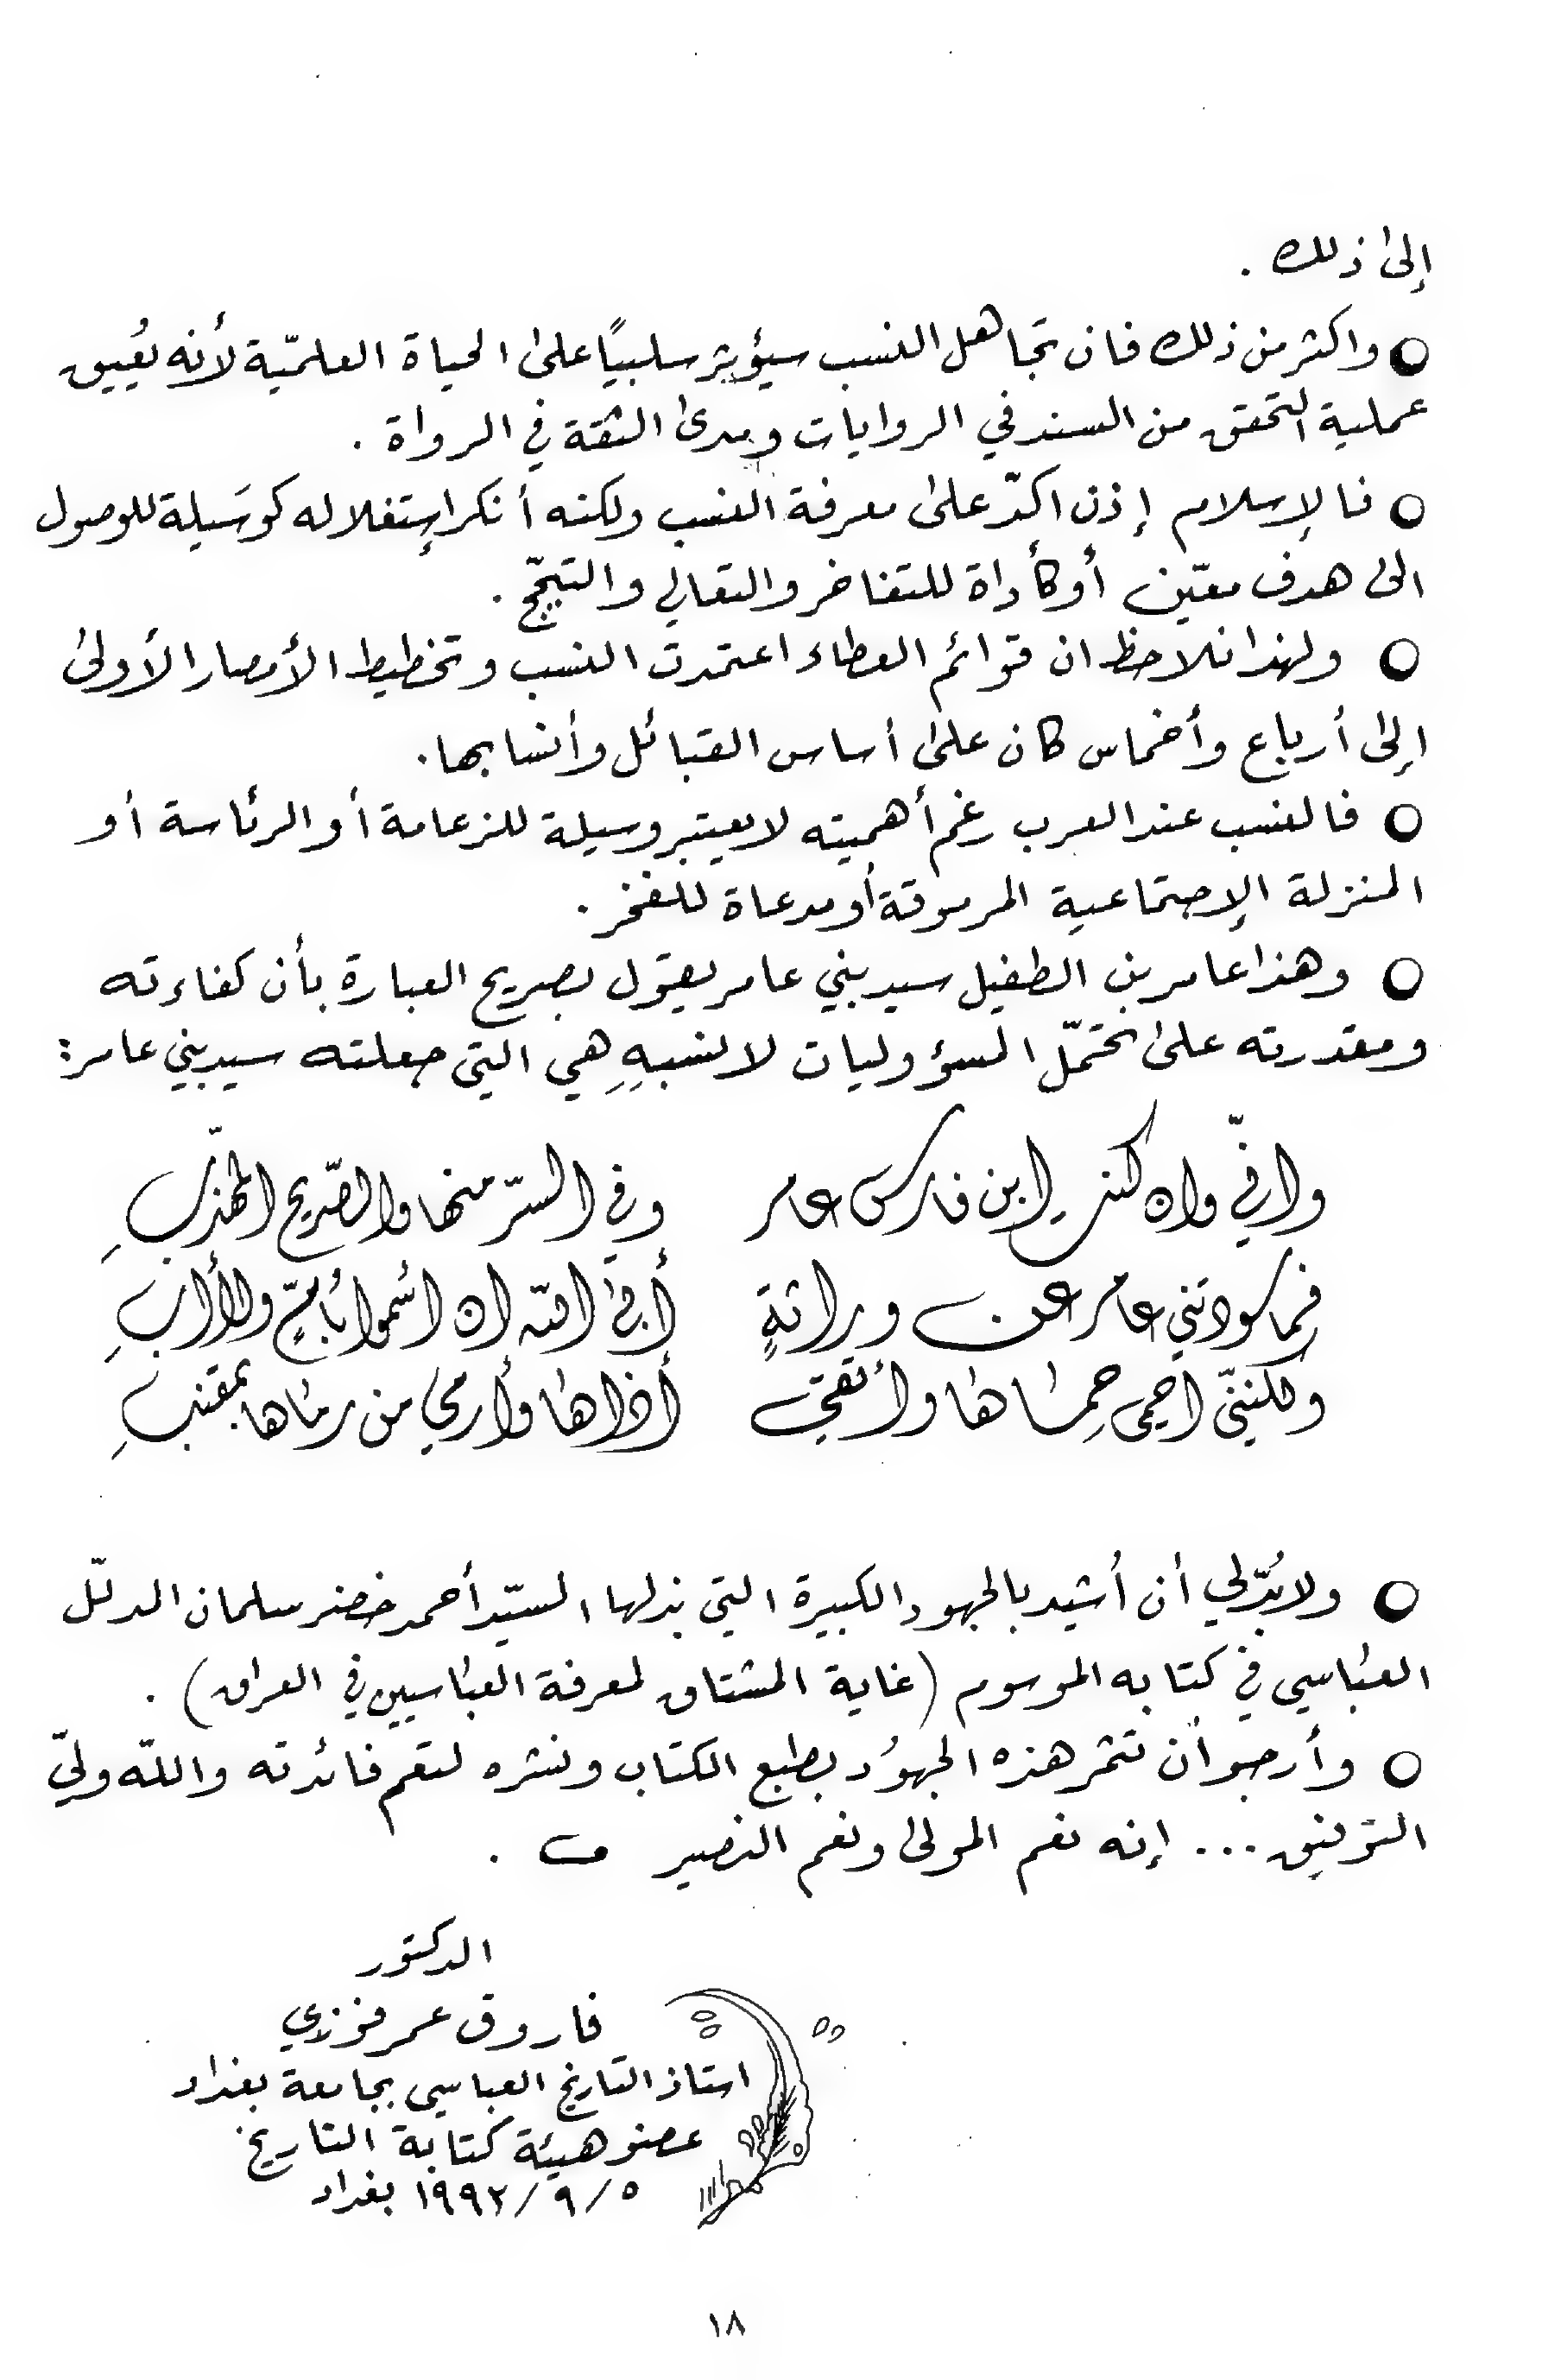 إلى ذلك .
○ واكثر من ذلك فان تجاهل النسب سيؤثر سلبياً على الحياة العلميّة لأنه يُعيق
عملية التحقق من السند في الروايات ومدى الثقة في الرواة .
○ فالإسلام إذن اكدّ على معرفة النسب ولكنه أنكر إستغلاله كوسَيلة للوصول
الى هدف معيّن أو كأداة للتفاخر والتعالي والتبجّح .
○ ولهذا نلاحظ ان قوائم العطاء اعتمدت النسب وتخطيط الأمصار الأولى
إلى أرباع وأخماس كان على أساس القبائل وأنسابها .
○ فالنسب عند العرب رغم أهميته لا يعتبر وسيلة للزعامة أو الرئاسة أو
المنزلة الإجتماعية المرموقة أو مدعاة للفخر .
○ وهذا عامر بن الطفيل سيد بني عامر يقول بصريح العبارة بأن كفاءته
ومقدرته على تحمّل المسؤوليات لا نسبهِ هي التي جعلته سيد بني عامر :
وانيّ وان كنت ابن فارس عامر وفي السّر منها والصّريح المهذّبِ
فما سودتني عامر عن وراثةٍ أبى الله ان اسُموا بُامٍّ ولا أبِ
ولكننيّ احمى حِماها وأتقي أذاها وأرمي من رماها بمقنبِ
○ ولا بُدّ لي أن أُشيد بالجهود الكبيرة التي بذلها السيّد أحمد خضر سلمان الدللّ
العباسي في كتابه الموسوم (غاية المشتاق لمعرفة العباسيين في العراق) .
○ وأرجو أن تثمر هذه الجهوُد بطبع الكتاب ونشره لتعم فائدته واللّه وليّ
التوفيق ... إنه نعم المولى ونعم النصير .
الدكتور
فاروق عمر فوزي
استاذ التاريخ العباسي بجامعة بغداد
عضو هيئة كتابة التاريخ
٥/٩/١٩٩٢ بغداد
١٨